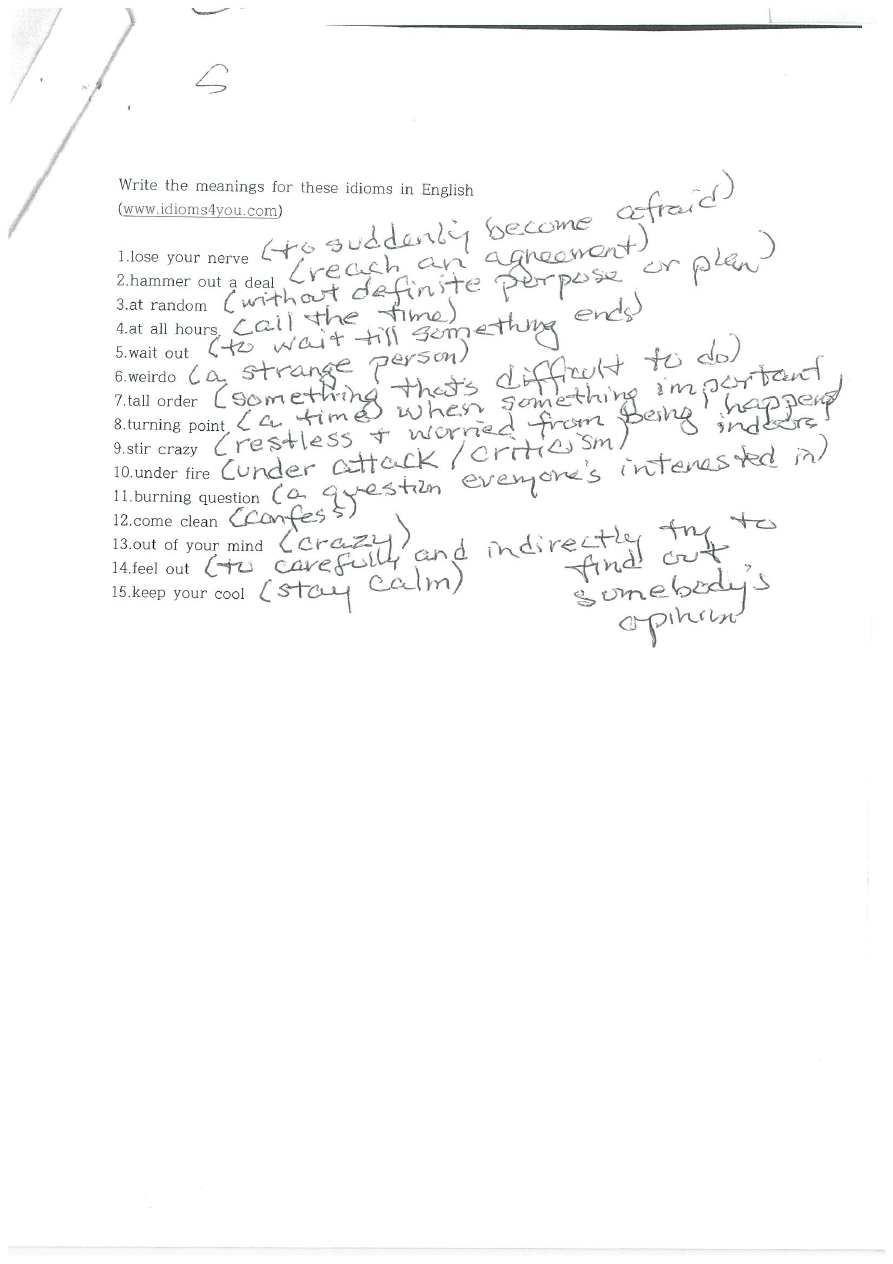 S
Write the meanings for these idioms in English
(www.idioms4you.com)
1.lose your nerve (to suddenly become afraid)
2.hammer out a deal (reach an agreement)
3.at random (without definite perpose or plan)
4.at all hours (all the time)
5.wait out (to wait till something ends)
6.weirdo (a strange person)
7.tall order (something that's difficult to do)
8.turning point (a time when something important happens)
9.stir crazy (restless + worried from being indoors)
10.under fire (under attack / criticism)
11.burning question (a question everyone's interested in)
12.come clean (confess)
13.out of your mind (crazy)
14.feel out (to carefully and indirectly try to
find out
somebody's
opinion
15.keep your cool (stay calm)